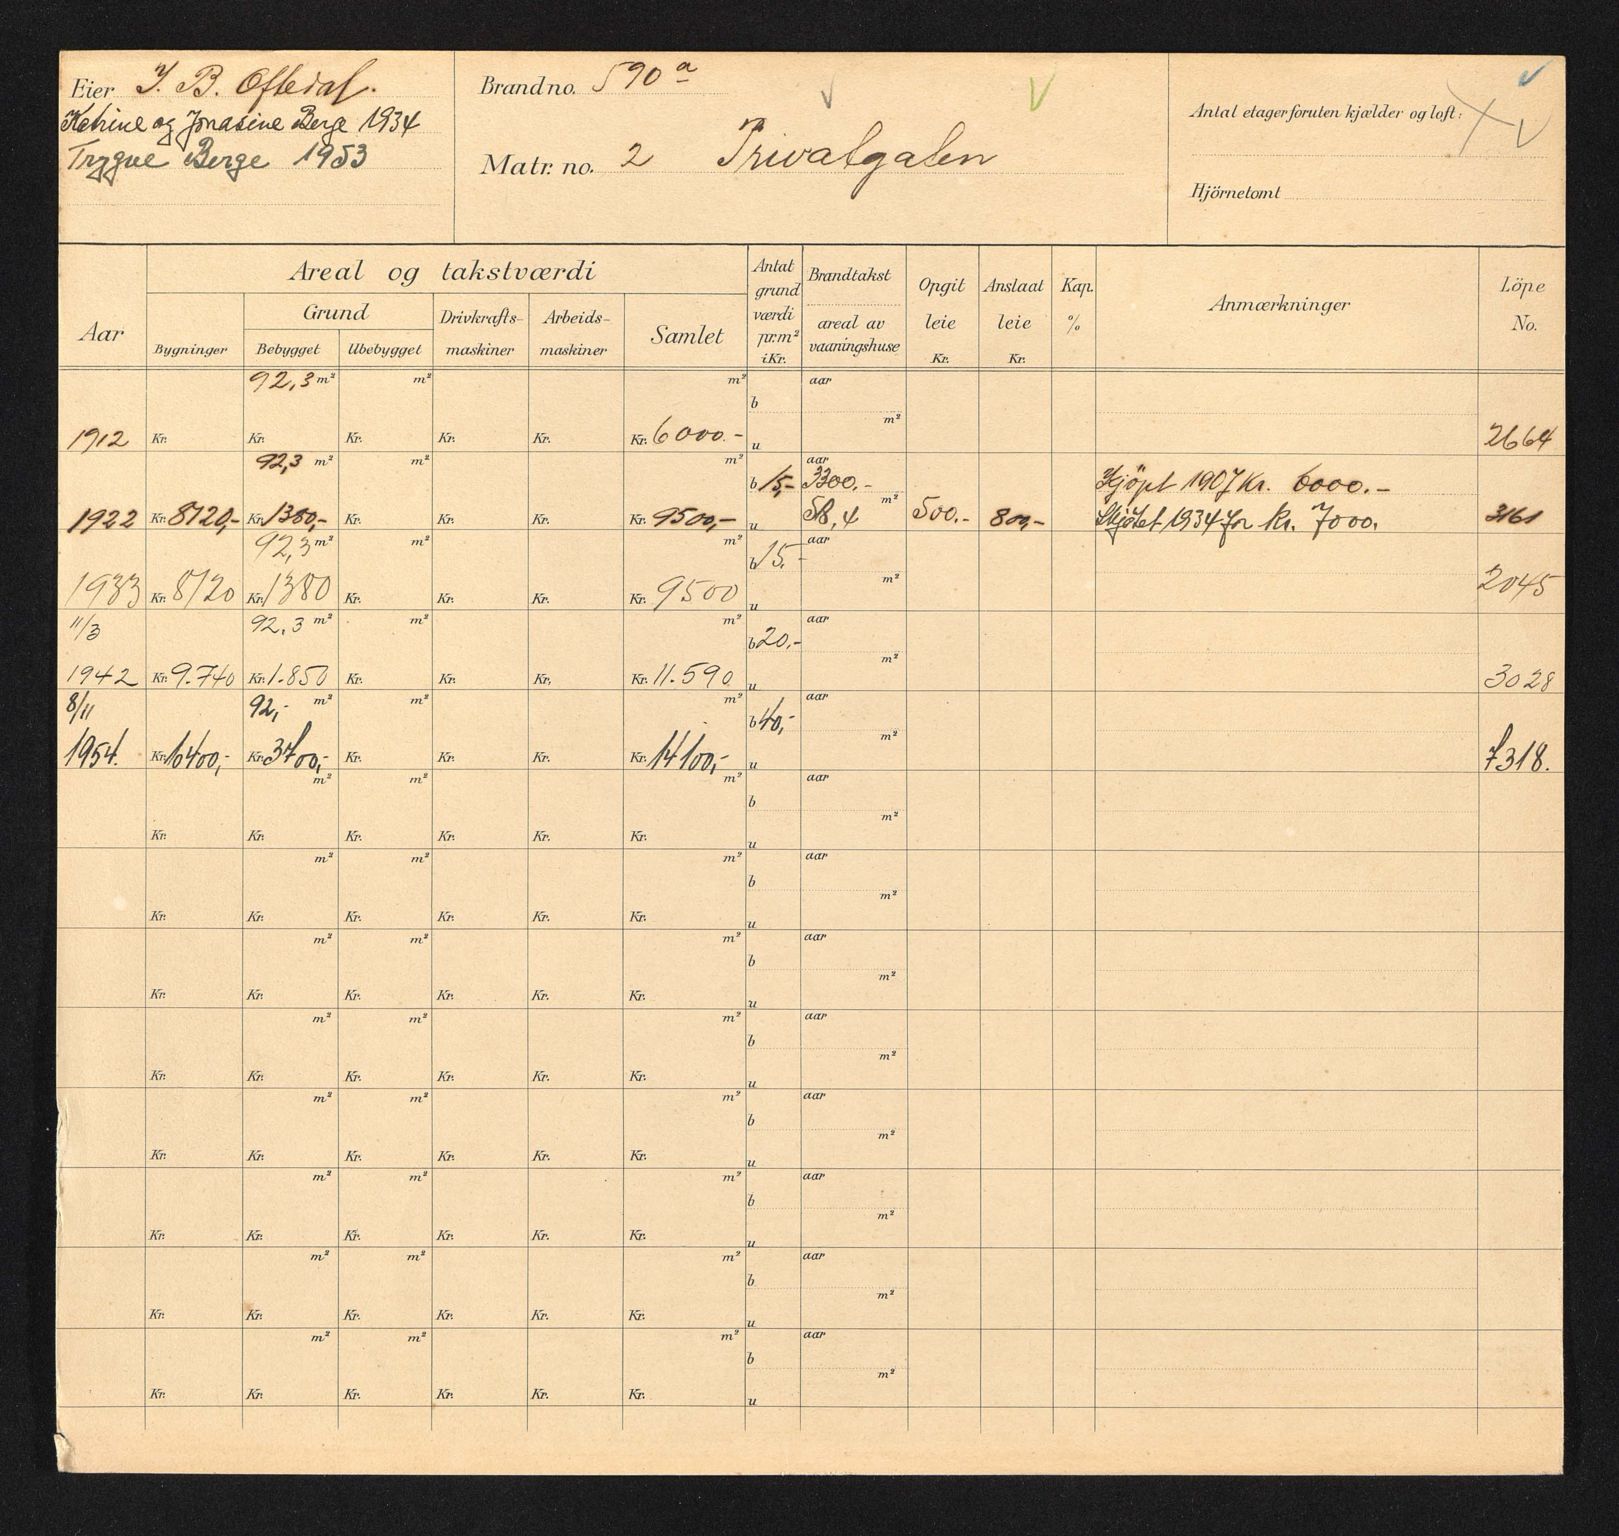 Eier J. B. Oftedal.
Katrine og Jonasine Berge 1934
Trygve Berge 1953
Brandno. 590 a
Matr. no. 2 Privatgaten
Antal etager foruten kjælder og loft:
Hjörnetomt
Aar
Areal og takstværdi
Bygninger
Grund
Bebygget Ubebygget
Drivkrafts-
maskiner
Arbeids-
maskiner
Samlet
Antat
grund
værdi
pr.m²
i Kr.
Brandtakst
areal av
vaaningshuse
Opgit
leie
Kr.
Anslaat
leie
Kr.
Kap.
%
Anmærkninger
Löpe
No.
92,3 m² m² m² aar
b
m²
1912 Kr. Kr. Kr. Kr. Kr. Kr. 6000.- u 2664
92,3 m² m² m² aar
b 15,- 3300.- Kjöpt 1907 kr. 6000.-
m²
1922 Kr. 8120,- Kr. 1380,- Kr. Kr. Kr. Kr. 9500,- u 58,4 500.- 800,- Skjötet 1934 for kr. 7000. 3161
92,3 m² m² m² aar
b 15.-
m²
1933 Kr. 8120 Kr. 1380 Kr. Kr. Kr. Kr. 9500 u 2045
11/3 92,3 m² m² m² aar
b 20.-
m²
1942 Kr. 9.740 Kr. 1.850 Kr. Kr. Kr. Kr. 11.590 u 3028
8/11 92,- m² m² m² aar
b 40,-
m²
1954. Kr. 10400,- Kr. 3700,- Kr. Kr. Kr. Kr. 14100,- u 7318.
m² m² m² aar
b
m²
Kr. Kr. Kr. Kr. Kr. Kr. u
m² m² m² aar
b
m²
Kr. Kr. Kr. Kr. Kr. Kr. u
m² m² m² aar
b
m²
Kr. Kr. Kr. Kr. Kr. Kr. u
m² m² m² aar
b
m²
Kr. Kr. Kr. Kr. Kr. Kr. u
m² m² m² aar
b
m²
Kr. Kr. Kr. Kr. Kr. Kr. u
m² m² m² aar
b
m²
Kr. Kr. Kr. Kr. Kr. Kr. u
m² m² m² aar
b
m²
Kr. Kr. Kr. Kr. Kr. Kr. u
m² m² m² aar
b
m²
Kr. Kr. Kr. Kr. Kr. Kr. u